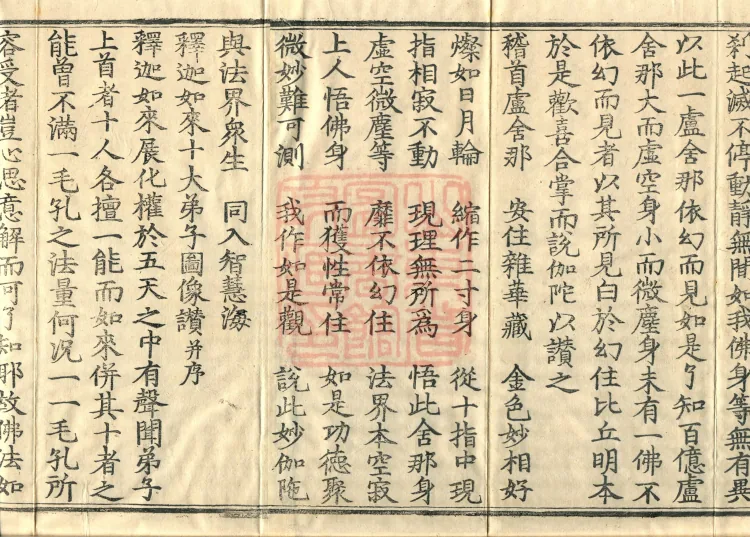 刹起滅不停動靜無間如我佛身等無有異
以此一盧舍那依幻而見如是了知百億盧
舍那大而虛空身小而微塵身未有一佛不
依幻而見者以其所見白於幻住比丘明本
於是歡喜合掌而說伽陀以讚之
稽首盧舍那 安住雜華藏 金色妙相好
燦如日月輪 縮作二寸身 從十指中現
指相寂不動 現理無所為 悟此舍那身
虛空微塵等 靡不依幻住 法界本空寂
上人悟佛身 而獲性常住 如是功德聚
微妙難可測 我作如是觀 說此妙伽陁
與法界衆生 同入智慧海
釋迦如來十大弟子圖像讚并序
釋迦如來展化權於五天之中有聲聞弟子
上首者十人各擅一能而如來併其十者之
能曾不滿一毛孔之法量何況一一毛孔所
容受者豈心思意解而可了知耶故佛法如